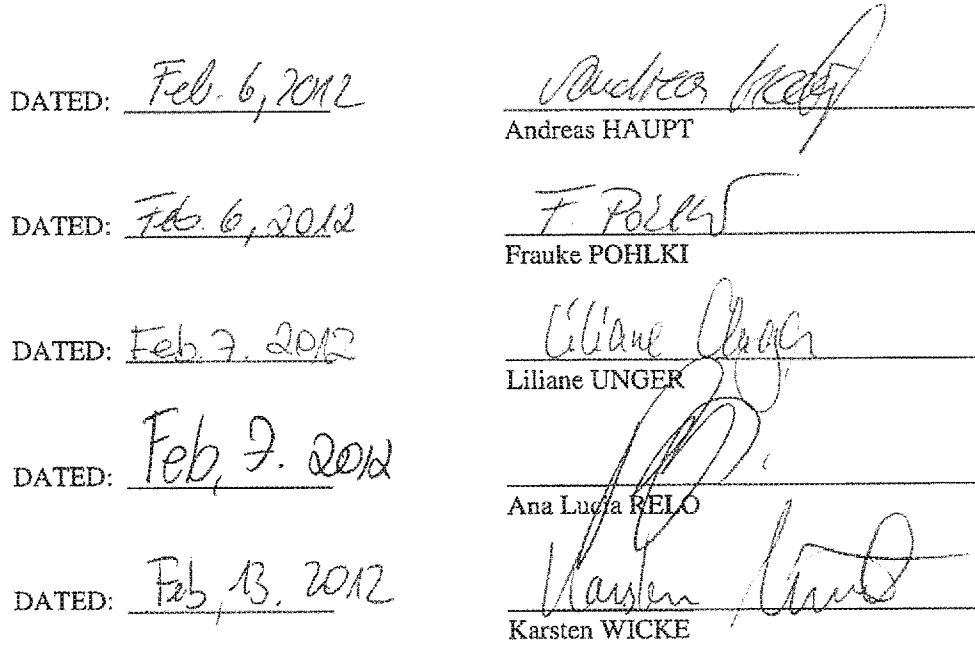 DATED: Feb. 6, 2012 Andreas Haupt
Andreas HAUPT
DATED: Feb. 6, 2012 F. Pohlki
Frauke POHLKI
DATED: Feb. 7. 2012 Liliane Unger
Liliane UNGER
DATED: Feb, 7. 2012
Ana Lucia RELO
DATED: Feb, 13. 2012 Karsten Wicke
Karsten WICKE